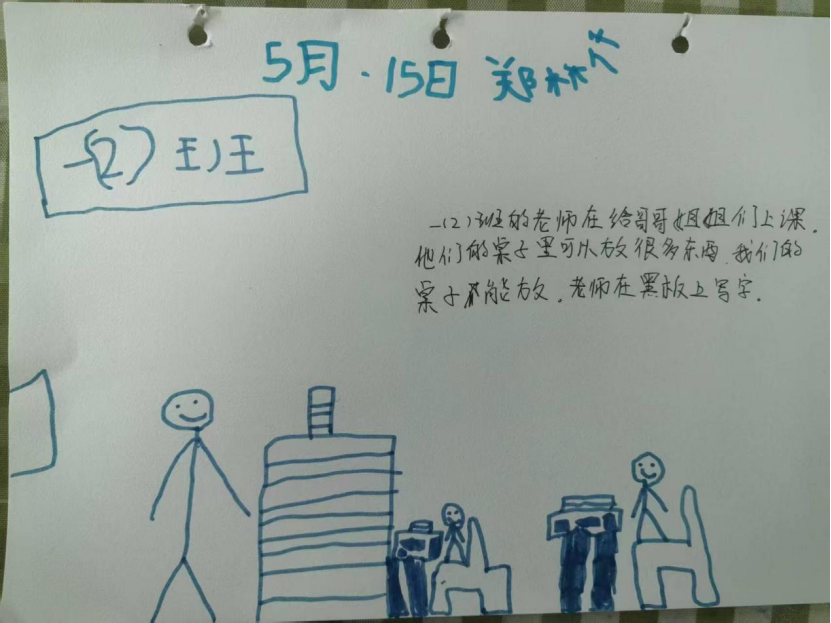 5月.15日 郑林
一(2)班
一(2)班的老师在给哥哥姐姐们上课.
他们的桌子里可以放很多东西.我们的
桌子不能放.老师在黑板上写字.